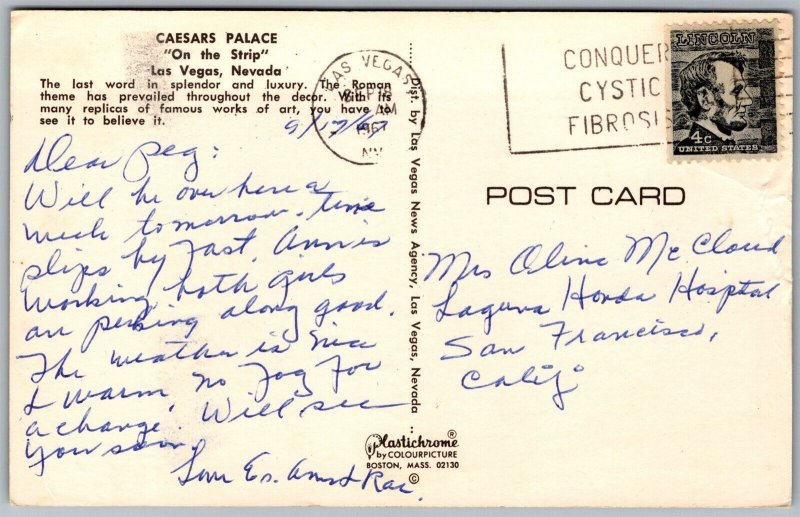 CAESARS PALACE
"On the Strip"
Las Vegas, Nevada
The last word in splendor and luxury. The Roman
theme has prevailed throughout the decor. With its
many replicas of famous works of art, you have to
see it to believe it.
9/17/67
Dear Peg:
Will be over here a
week tomorrow. time
slips by fast. Ann is
working. both girls
are perking along good.
The weather is nice
& warm, no fog for
a change. Will see
you soon.
Love
Rae.
Dist. by Las Vegas News Agency, Las Vegas, Nevada
Plastichrome®
by COLOURPICTURE
BOSTON, MASS. 02130
©
LAS VEGAS
AM
1967
NV
CONQUER
CYSTIC
FIBROSIS
LINCOLN
4c
UNITED STATES
POST CARD
Mrs Oline McCloud
Laguna Honda Hospital
San Francisco,
Calif